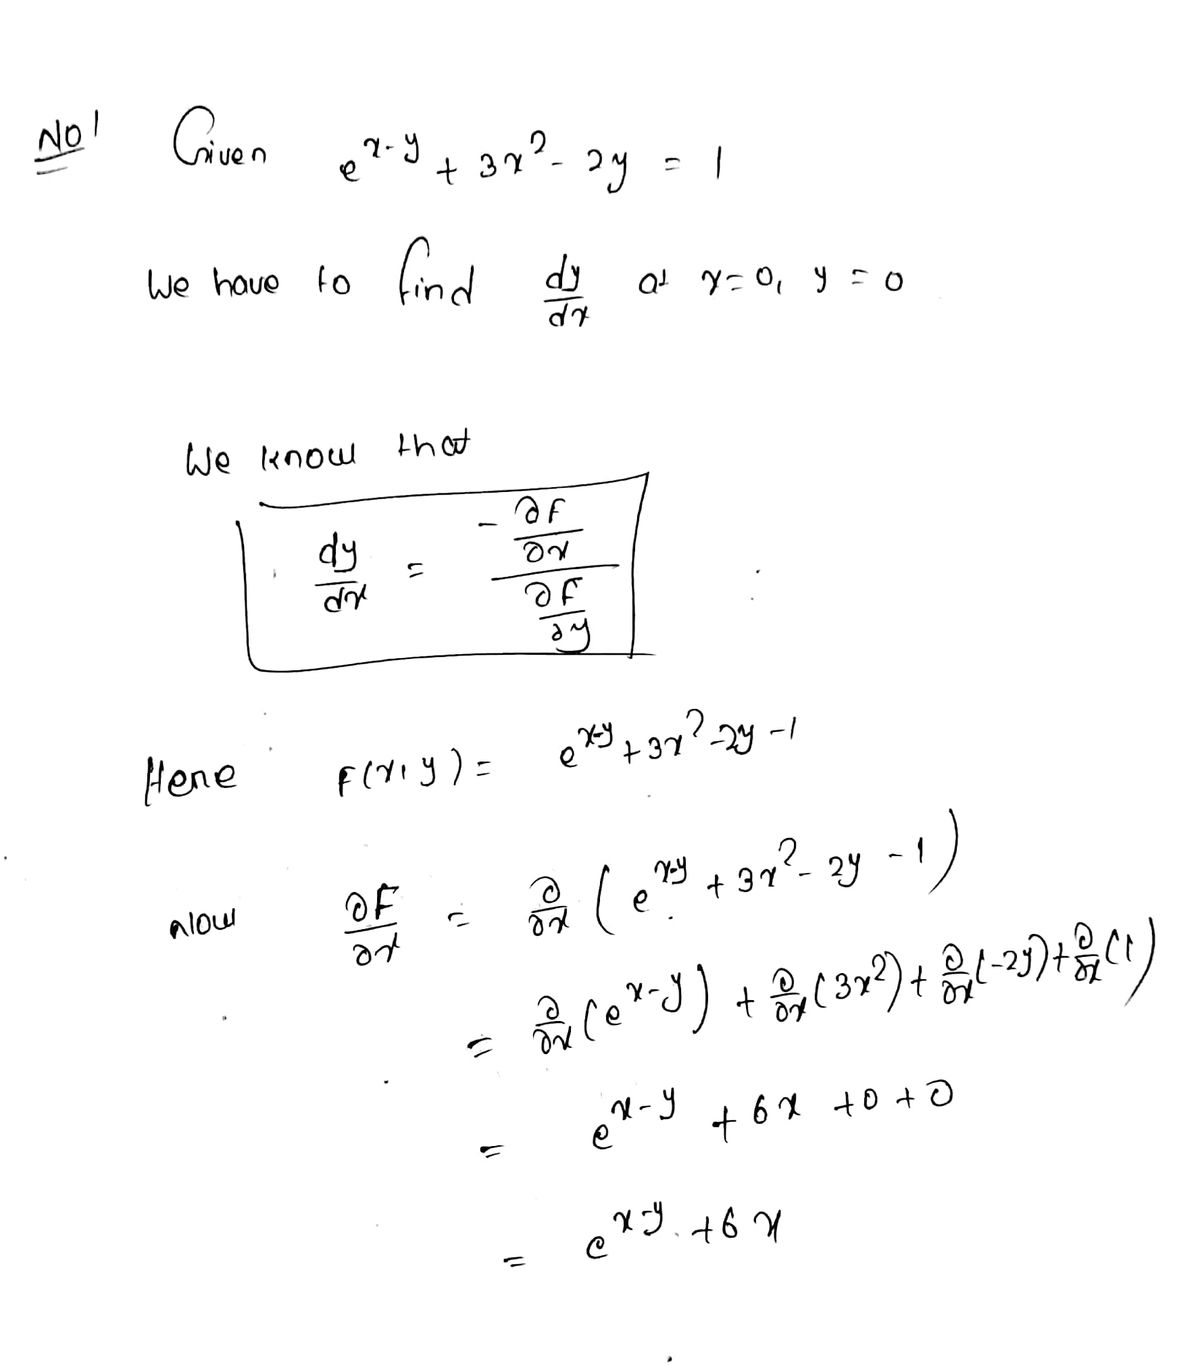 No1 Given e^{x-y} + 3x^2 - 2y = 1
We have to find dy/dx at x=0, y=0
We know that
dy/dx = (-∂F/∂x)/(∂F/∂y)
Here F(x, y) = e^{x-y} + 3x^2 - 2y - 1
Now ∂F/∂x = ∂/∂x (e^{x-y} + 3x^2 - 2y - 1)
= ∂/∂x (e^{x-y}) + ∂/∂x (3x^2) + ∂/∂x (-2y) + ∂/∂x (1)
= e^{x-y} + 6x + 0 + 0
= e^{x-y} + 6x